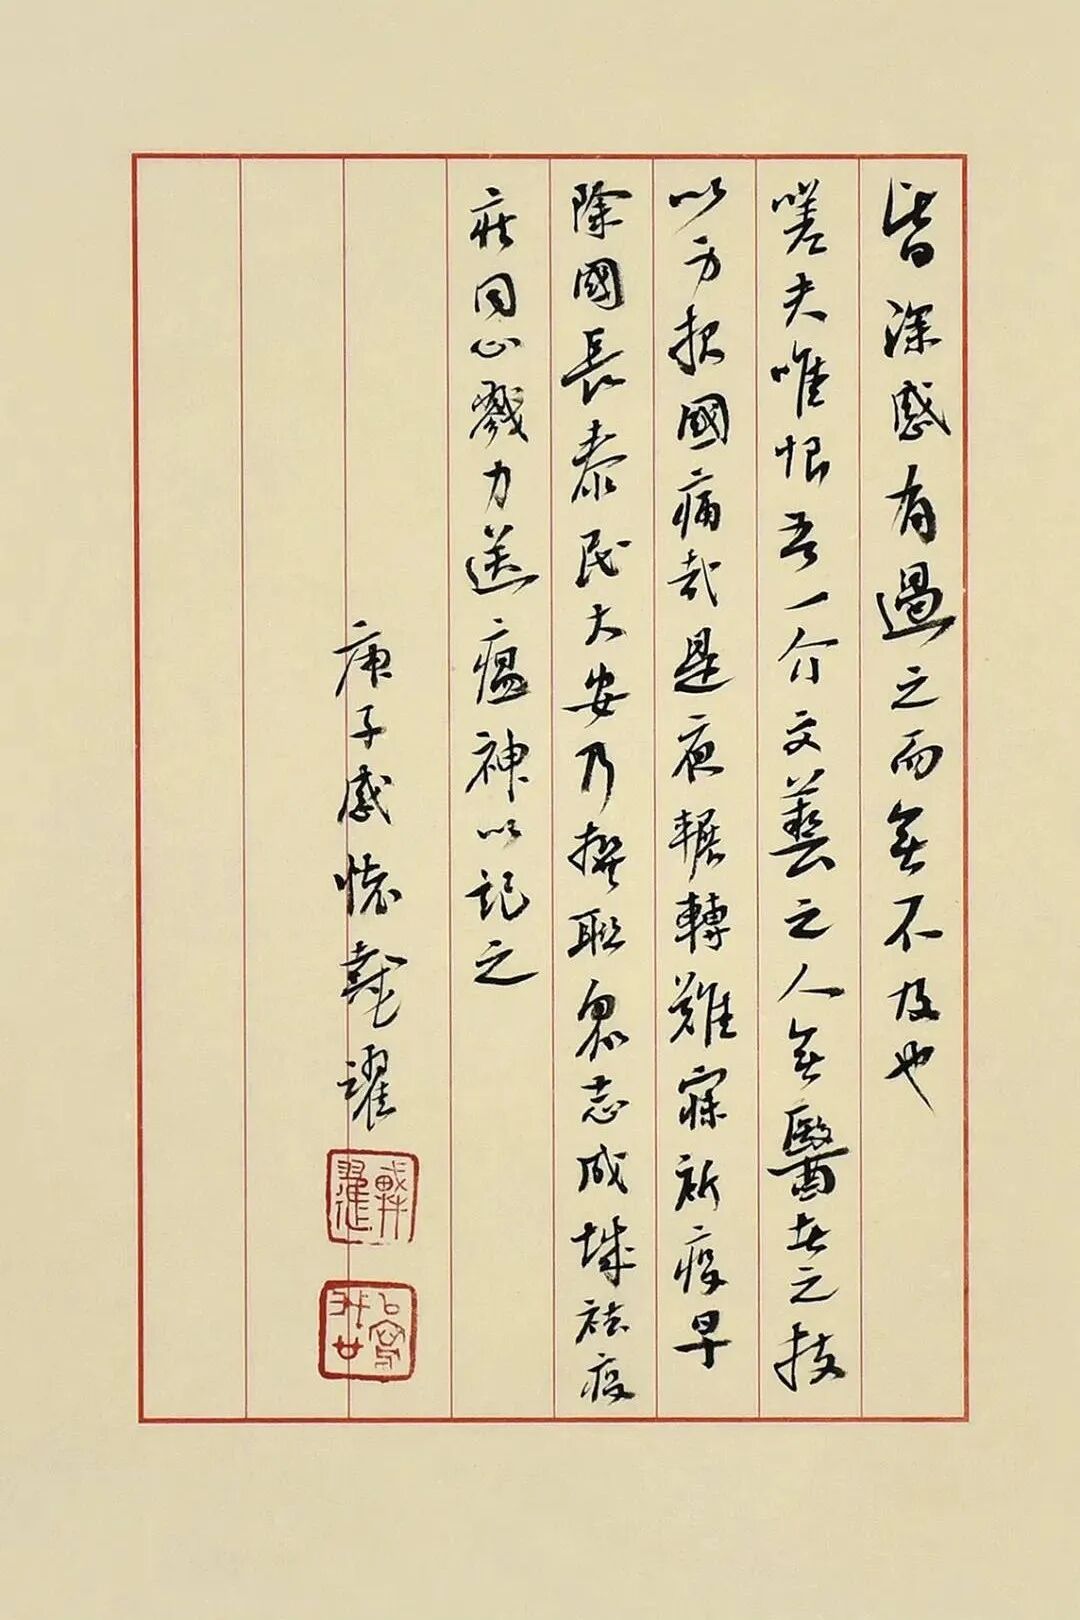 皆深感有過之而無不及也
嗟夫唯恨吾一介文藝之人無醫者之技
以方报國痛哉是夜輾轉難寐祈疫早
除國長泰民大安乃撰联眾志成城祛疫
疾同心戮力送瘟神以記之
庚子感懷